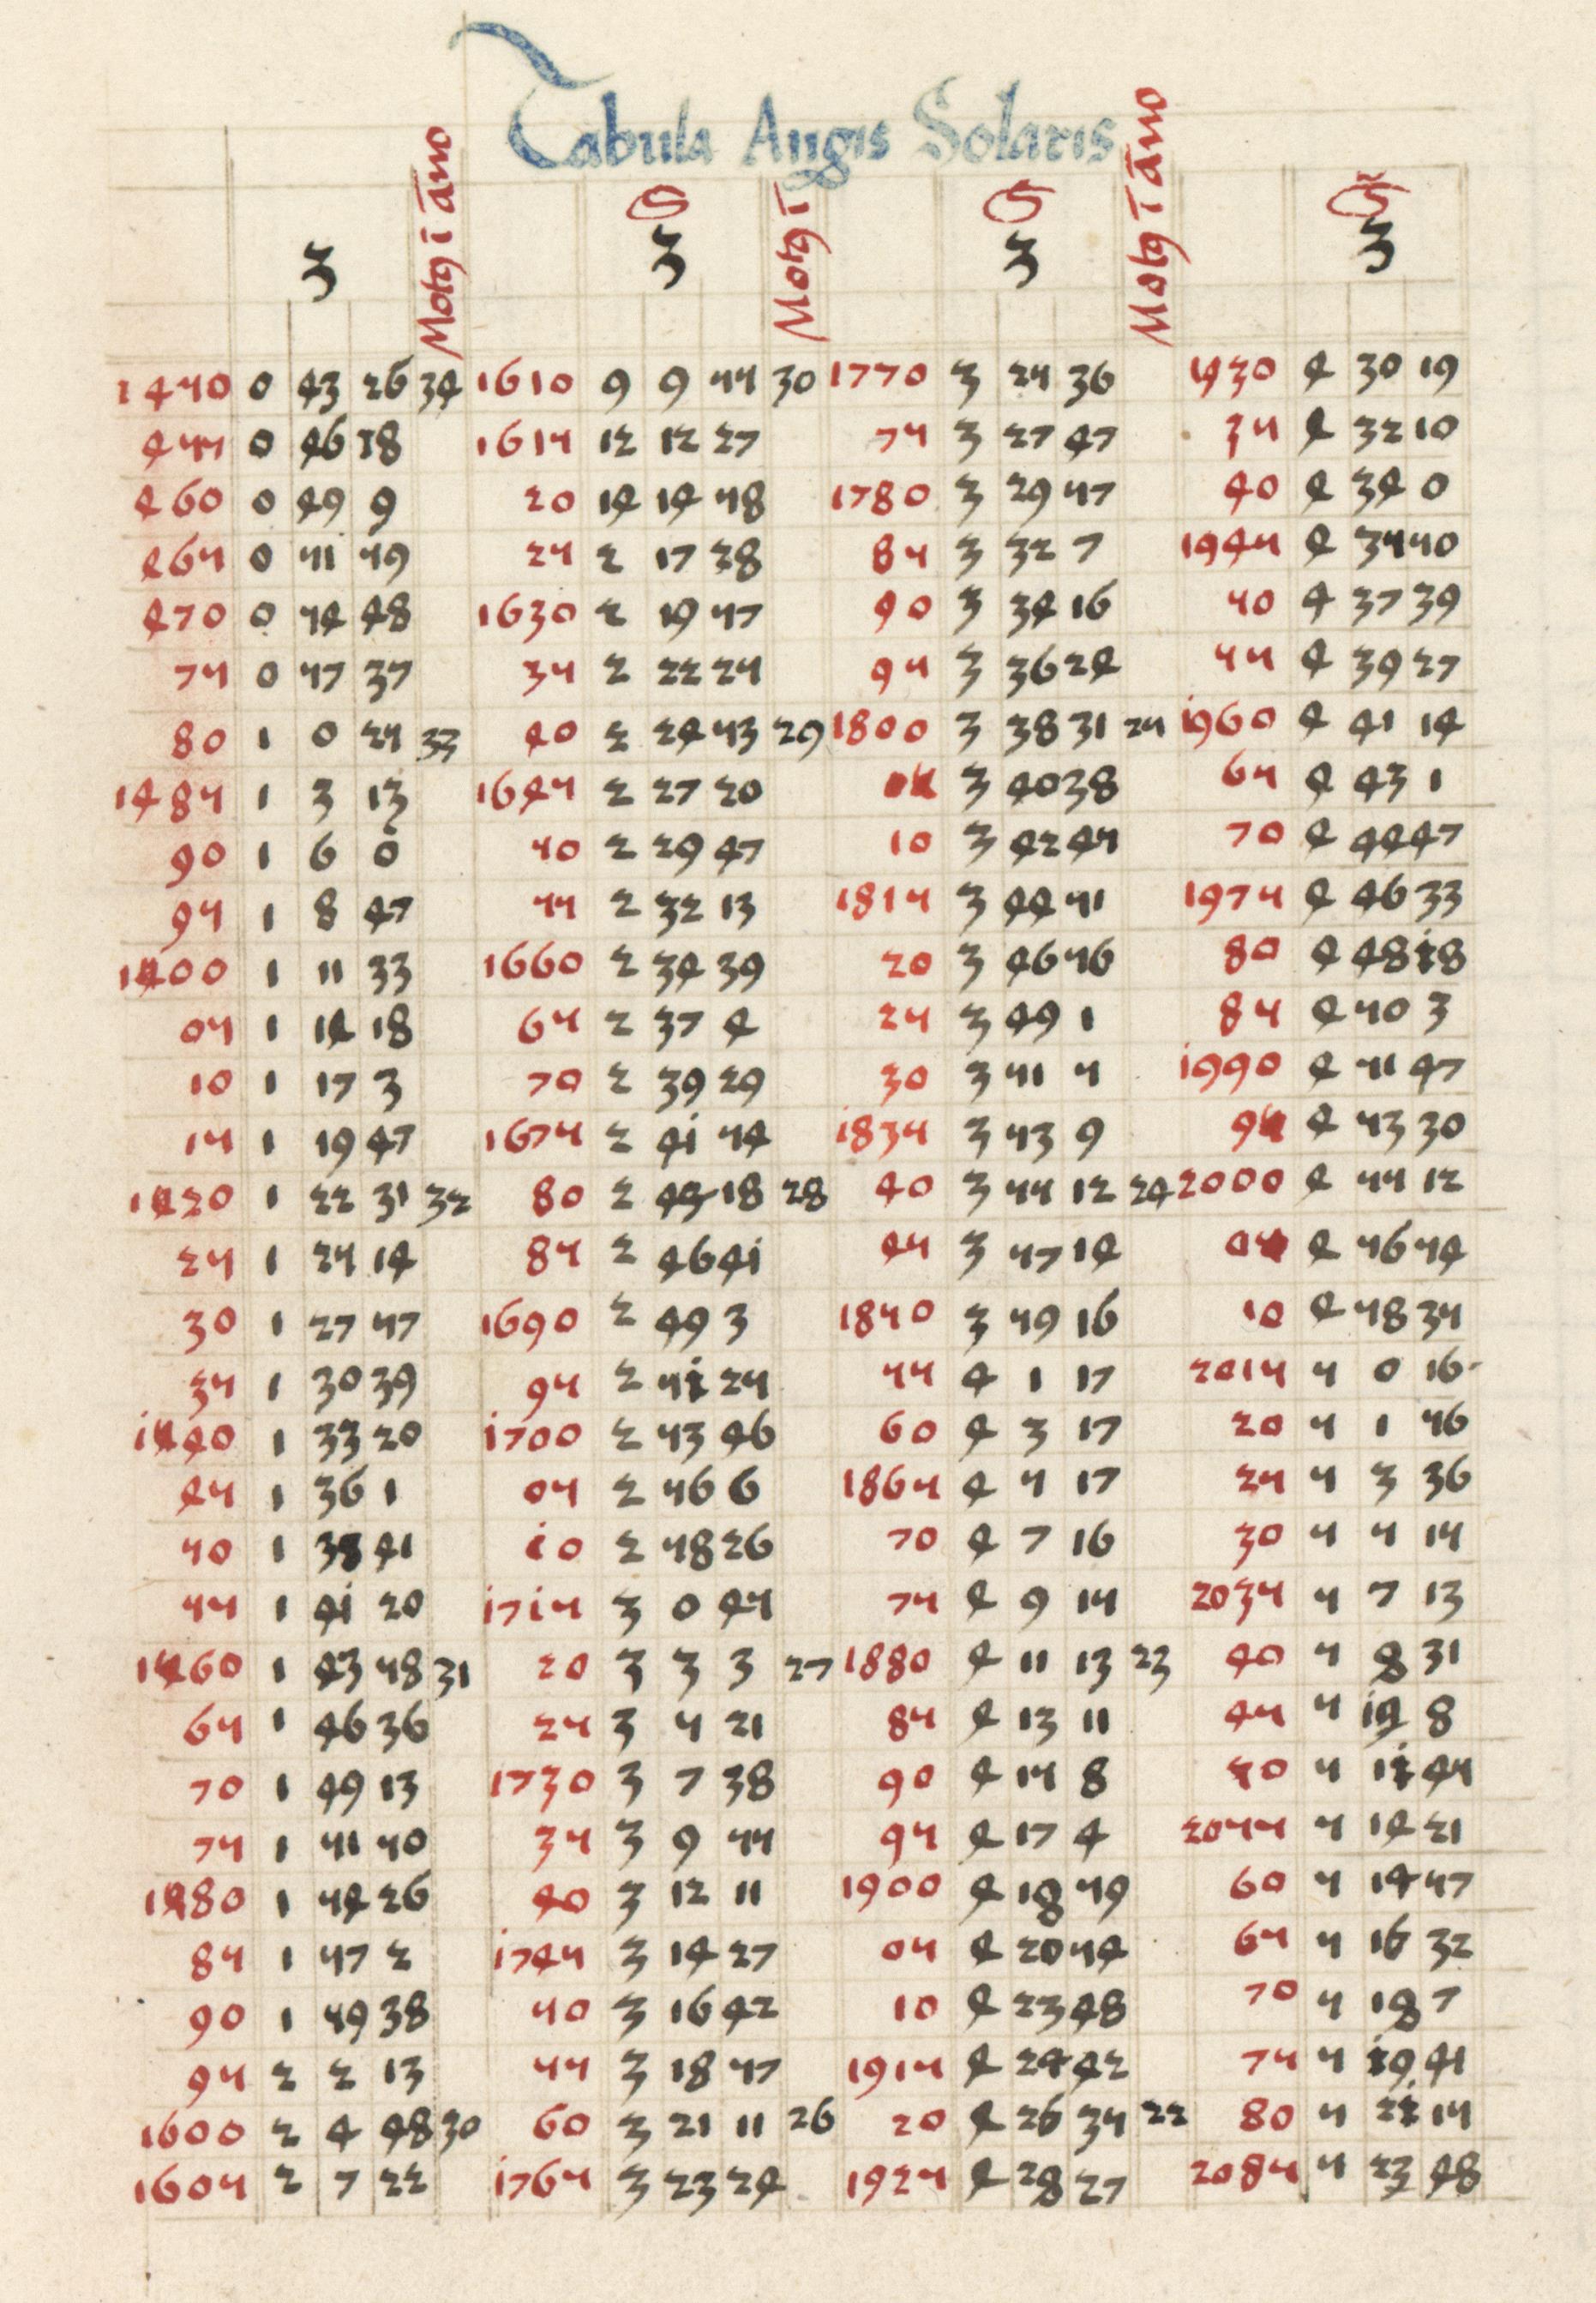 Tabula Augis Solaris
Motꝯ ī āno Motꝯ ī Motꝯ ī āno
S S S̃
3 3 3 3
1450 0 43 26 34 1610 9 9 55 30 1770 3 25 36 1930 4 30 19
455 0 46 18 1615 12 12 27 75 3 27 47 35 4 32 10
460 0 49 9 20 14 14 58 1780 3 29 57 40 4 34 0
465 0 51 59 25 2 17 28 85 3 32 7 1945 4 35 50
470 0 54 48 1630 2 19 57 90 3 34 16 50 4 37 39
75 0 57 37 35 2 22 25 95 3 36 24 55 4 39 27
80 1 0 25 33 40 2 24 53 29 1800 3 38 31 25 1960 4 41 14
1485 1 3 13 1645 2 27 20 3 40 38 65 4 43 1
90 1 6 0 50 2 29 47 10 3 42 45 70 4 44 47
95 1 8 47 55 2 32 13 1815 3 44 51 1975 4 46 33
1500 1 11 33 1660 2 34 39 20 3 46 56 80 4 48 18
05 1 14 18 65 2 37 4 25 3 49 1 85 4 50 3
10 1 17 3 70 2 39 29 30 3 51 5 1990 4 51 47
15 1 19 47 1675 2 41 54 1835 3 53 9 95 4 53 30
1520 1 22 31 32 80 2 44 18 28 40 3 55 12 24 2000 4 55 12
25 1 25 14 85 2 46 41 45 3 57 14 05 4 56 54
30 1 27 57 1690 2 49 3 1850 3 59 16 10 4 58 35
35 1 30 39 95 2 51 25 55 4 1 17 2015 5 0 16
1540 1 33 20 1700 2 53 46 60 4 3 17 20 5 1 56
45 1 36 1 05 2 56 6 1865 4 5 17 25 5 3 36
50 1 38 41 10 2 58 26 70 4 7 16 30 5 5 15
55 1 41 20 1715 3 0 45 75 4 9 15 2035 5 7 13
1560 1 43 58 31 20 3 3 3 27 1880 4 11 13 23 40 5 8 31
65 1 46 36 25 3 5 21 85 4 13 11 45 5 10 8
70 1 49 13 1730 3 7 38 90 4 15 8 50 5 11 45
75 1 51 50 35 3 9 55 95 4 17 4 2055 5 14 21
1580 1 54 26 40 3 12 11 1900 4 18 59 60 5 14 57
85 1 57 2 1745 3 14 27 05 4 20 54 65 5 16 32
90 1 59 38 50 3 16 42 10 4 23 48 70 5 18 7
95 2 2 13 55 3 18 57 1915 4 24 42 75 5 19 41
1600 2 4 48 30 60 3 21 11 26 20 4 26 35 22 80 5 21 15
1605 2 7 22 1765 3 23 24 1925 4 28 27 2085 5 23 48